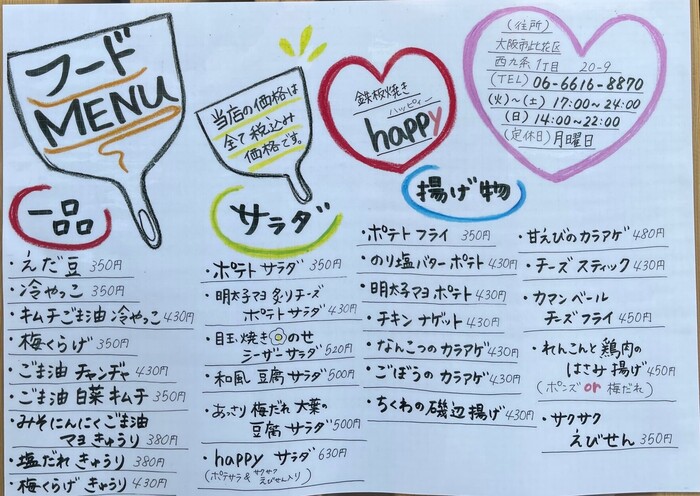 フード
MENU
当店の価格は
全て税込み
価格です。
鉄板焼き
ハッピィー
happy
(住所)
大阪市此花区
西九条1丁目 20-9
(TEL) 06-6616-8870
(火)~(土) 17:00~24:00
(日) 14:00~22:00
(定休日) 月曜日
一品
・えだ豆 350円
・冷やっこ 350円
・キムチごま油 冷やっこ 430円
・梅くらげ 350円
・ごま油 チャンヂャ 430円
・ごま油 白菜 キムチ 350円
・みそにんにくごま油
マヨ きゅうり 380円
・塩だれ きゅうり 380円
・梅くらげ きゅうり 430円
サラダ
・ポテト サラダ 350円
・明太子マヨ 炙りチーズ
ポテト サラダ 430円
・目玉焼き のせ
シーザー サラダ 520円
・和風 豆腐 サラダ 500円
・あっさり 梅だれ 大葉の
豆腐 サラダ 500円
・happy サラダ 630円
(ポテサラ & サクサクえびせん入り)
揚げ物
・ポテト フライ 350円
・のり塩バター ポテト 430円
・明太子マヨ ポテト 430円
・チキン ナゲット 430円
・なんこつの カラアゲ 430円
・ごぼうの カラアゲ 430円
・ちくわの 磯辺 揚げ 430円
・甘えびの カラアゲ 480円
・チーズ スティック 430円
・カマンベール
チーズ フライ 450円
・れんこんと 鶏肉の
はさみ 揚げ 450円
(ポンズ or 梅だれ)
・サクサク
えびせん 350円